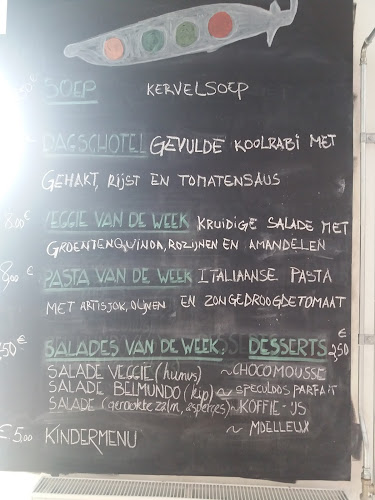 50€ SOEP KERVELSOEP
DAGSCHOTEL GEVULDE KOOLRABI MET
GEHAKT, RIJST EN TOMATENSAUS
8,00€ VEGGIE VAN DE WEEK KRUIDIGE SALADE MET
GROENTENQUINOA, ROZIJNEN EN AMANDELEN
8,00 € PASTA VAN DE WEEK ITALIAANSE PASTA
MET ARTISJOK, OLIJVEN EN ZONGEDROOGDETOMAAT
,50€ SALADES VAN DE WEEK: DESSERTS € 2,50
SALADE VEGGIE (humus) ~ CHOCOMOUSSE
SALADE BELMUNDO (kip) ~ SPECULOOS PARFAIT
SALADE (gerookte zalm, asperges) ~ KOFFIE-IJS
~ MOELLEUX
€ 5,00 KINDERMENU